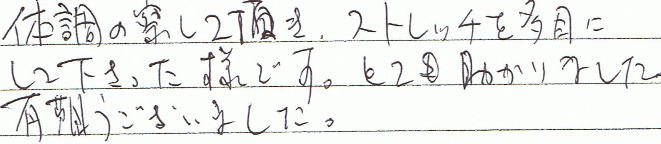 体調の察して頂き、ストレッチを多目に
して下さった様です。とても助かりました。
有難うございました。